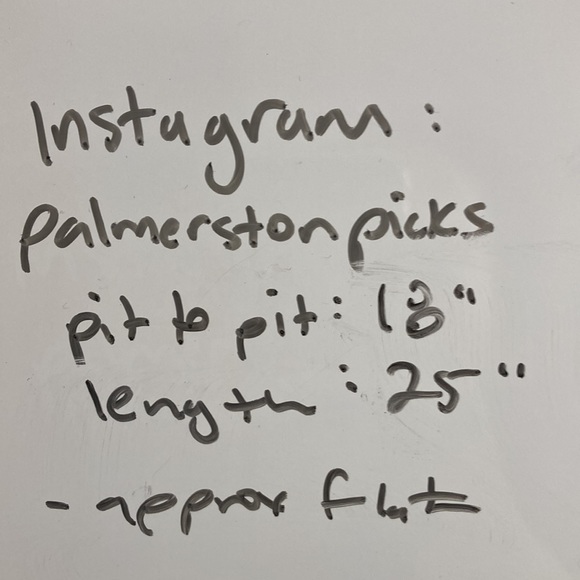 Instagram:
palmerstonpicks
pit to pit: 18"
length: 25"
- approx flat